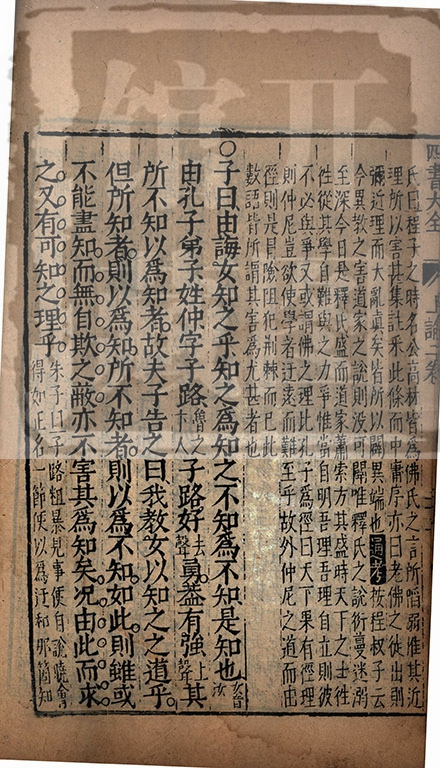 四書大全 上論二卷
氏曰程子之時名公高材皆爲佛氏之言所陷弱惟其近
理所以害甚集註釆此條而中庸序亦曰老佛之徒出則
彌近理而大亂眞矣皆所以闢異端也通考按程叔子云
今異教之害道家之說則沒可闢唯釋氏之說衍蔓迷溺
至深今日是釋氏盛而道家蕭索方其盛時天下之士徃
徃從其學自難與之力爭惟當自明吾理吾理自立則彼
不必與爭又或謂佛之理比孔子爲徑曰天下果有徑理
則仲尼豈欲使學者迂遠而難至乎故外仲尼之道而由
徑則是冒險阻犯荆棘而已此
數語皆所謂其害爲尤甚者也
○子曰由誨女知之乎知之爲知之不知爲不知是知也女音汝
由孔子弟子姓仲字子路魯之卞人子路好去聲勇葢有強上聲其
所不知以爲知者故夫子告之曰我教女以知之之道乎
但所知者則以爲知所不知者則以爲不知如此則雖或
不能盡知而無自欺之蔽亦不害其爲知矣況由此而求
之又有可知之理乎朱子曰子路粗暴見事便自說曉會
得如正名一節便以爲迂和那箇知